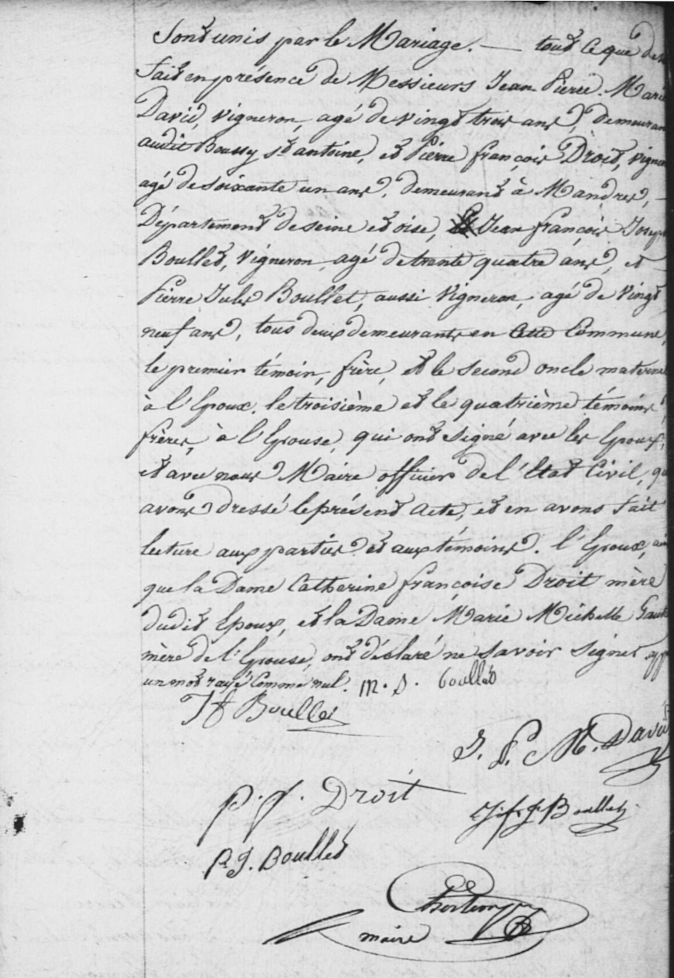 Sont unis par le Mariage. — tout ce que de
fait en présence de Messieurs Jean Pierre Marie
David, Vigneron, agé de vingt trois ans, demeuran
audit Boussy St antoine, et Pierre françois Droit, vigne
agé de soixante un ans, demeurant à Mandres, —
Département de seine et oise, Jean françois Joseph
Boullet, Vigneron, agé de trente quatre ans, et
Pierre Jules Boullet, aussi Vigneron, agé de vingt
neuf ans, tous deux demeurants en Cette Commune,
le premier témoin, frère, et le second oncle materne
à l'Epoux. le troisième et le quatrième témoins,
frères, à l'Epouse, qui ont signé avec les Epoux,
et avec nous Maire officier de l'Etat Civil, qui
avons dressé le présent acte, et en avons fait
lecture aux parties et aux témoins. l'Epoux, ainsi
que la Dame Catherine françoise Droit mère
dudit Epoux, et la Dame Marie Michelle
mère de l'Epouse, ont déclaré ne savoir signer,
un mot rayé Comme nul. m. d. boullet
J f Boullet
J. P. M. David
P. f. Droit
J. f. J. Boullet
P. J. Boullet
maire